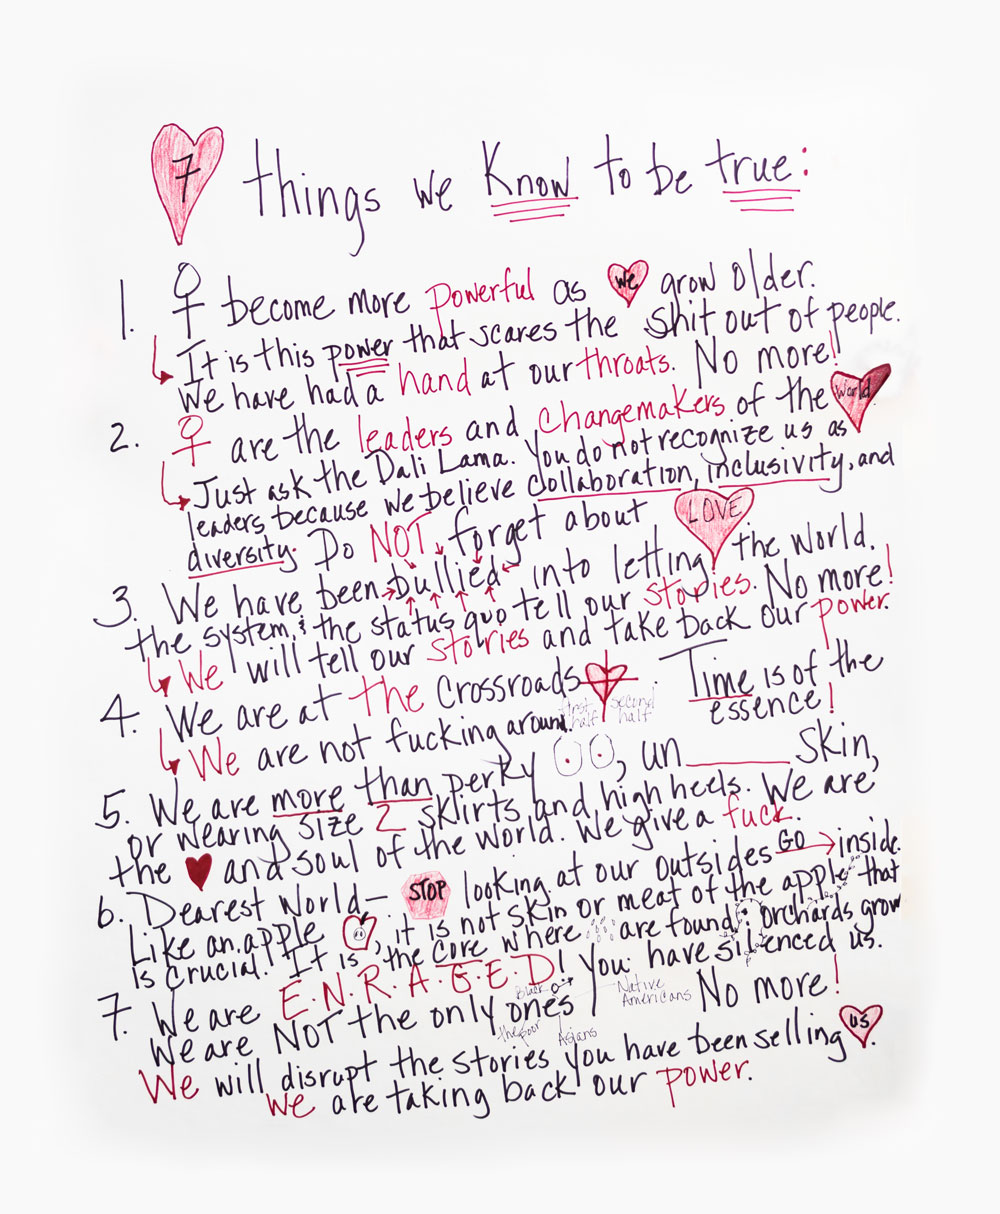 7 things we Know to be true:
1. ♀ become more powerful as we grow older.
It is this power that scares the shit out of people.
We have had a hand at our throats. No more!
2. ♀ are the leaders and changemakers of the World.
Just ask the Dali Lama. You do not recognize us as
leaders because we believe collaboration, inclusivity, and
diversity. Do NOT forget about LOVE
3. We have been bullied into letting the world.
the system, & the status quo tell our stories. No more!
We will tell our stories and take back our power.
4. We are at the Crossroads. Time is of the
essence!
first half second half
We are not fucking around.
5. We are more than perky , un______ skin,
or wearing size 2 skirts and high heels. We are
the and soul of the world. We give a fuck.
6. Dearest World— STOP looking at our outsides GO inside.
Like an apple , it is not skin or meat of the apple that
is crucial. It is the core where are found. Orchards grow
7. We are E.N.R.A.G.E.D! You have silenced us.
We are NOT the only ones No more!
Black
Native Americans
the poor
Asians
We will disrupt the stories you have been selling us.
We are taking back our power.